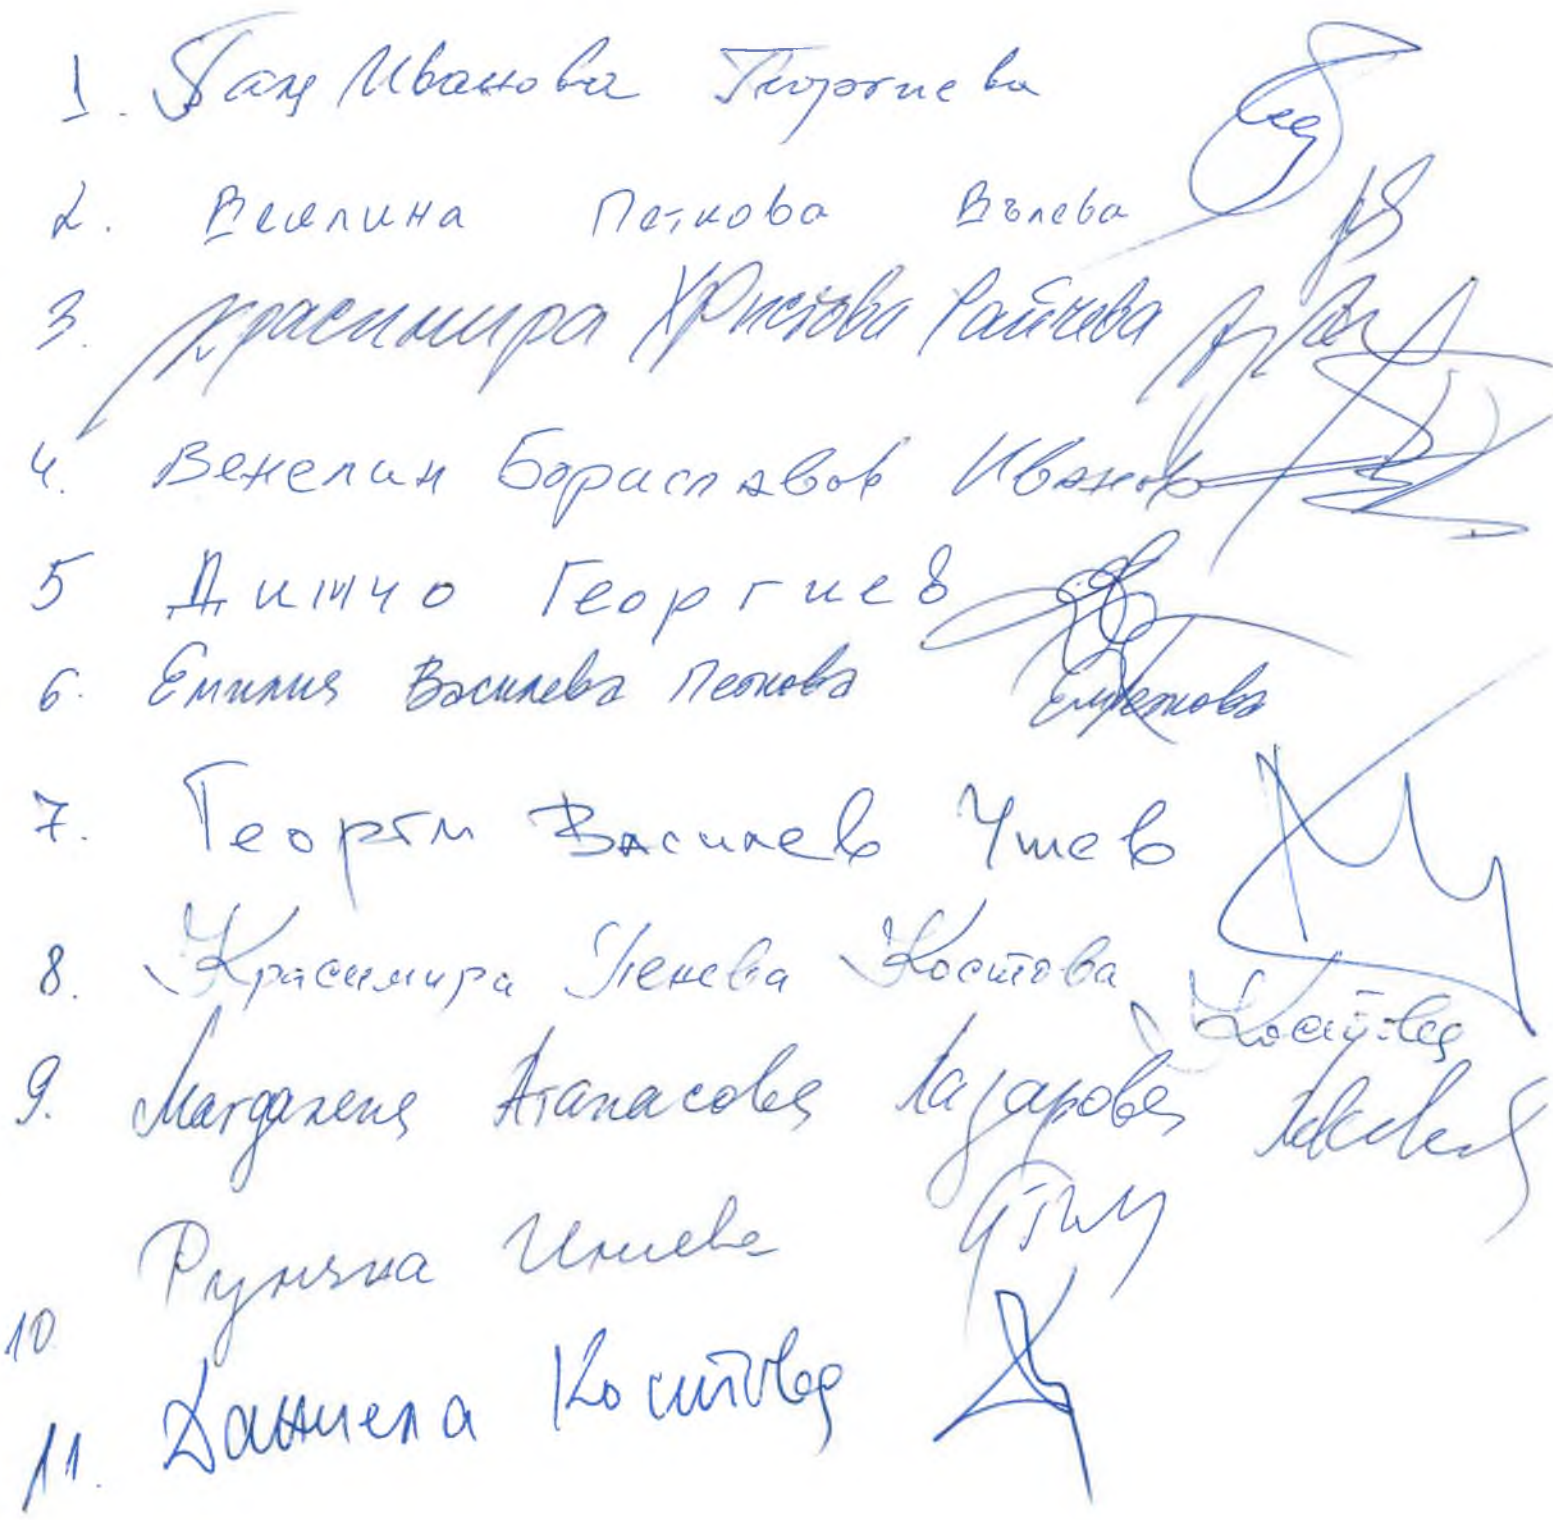 1. Галя Иванова Георгиева
2. Веселина Петкова Вълева
3. Красимира Христова Райчева
4. Венелин Бориславов Иванов
5 Динчо Георгиев
6. Емилия Василева Петкова ЕмПеткова
7. Георги Василев Ушев
8. Красимира Пенева Костова Костова
9. Магдалена Атанасова Лазарова
10 Румяна Илиева
11. Даниела Костова